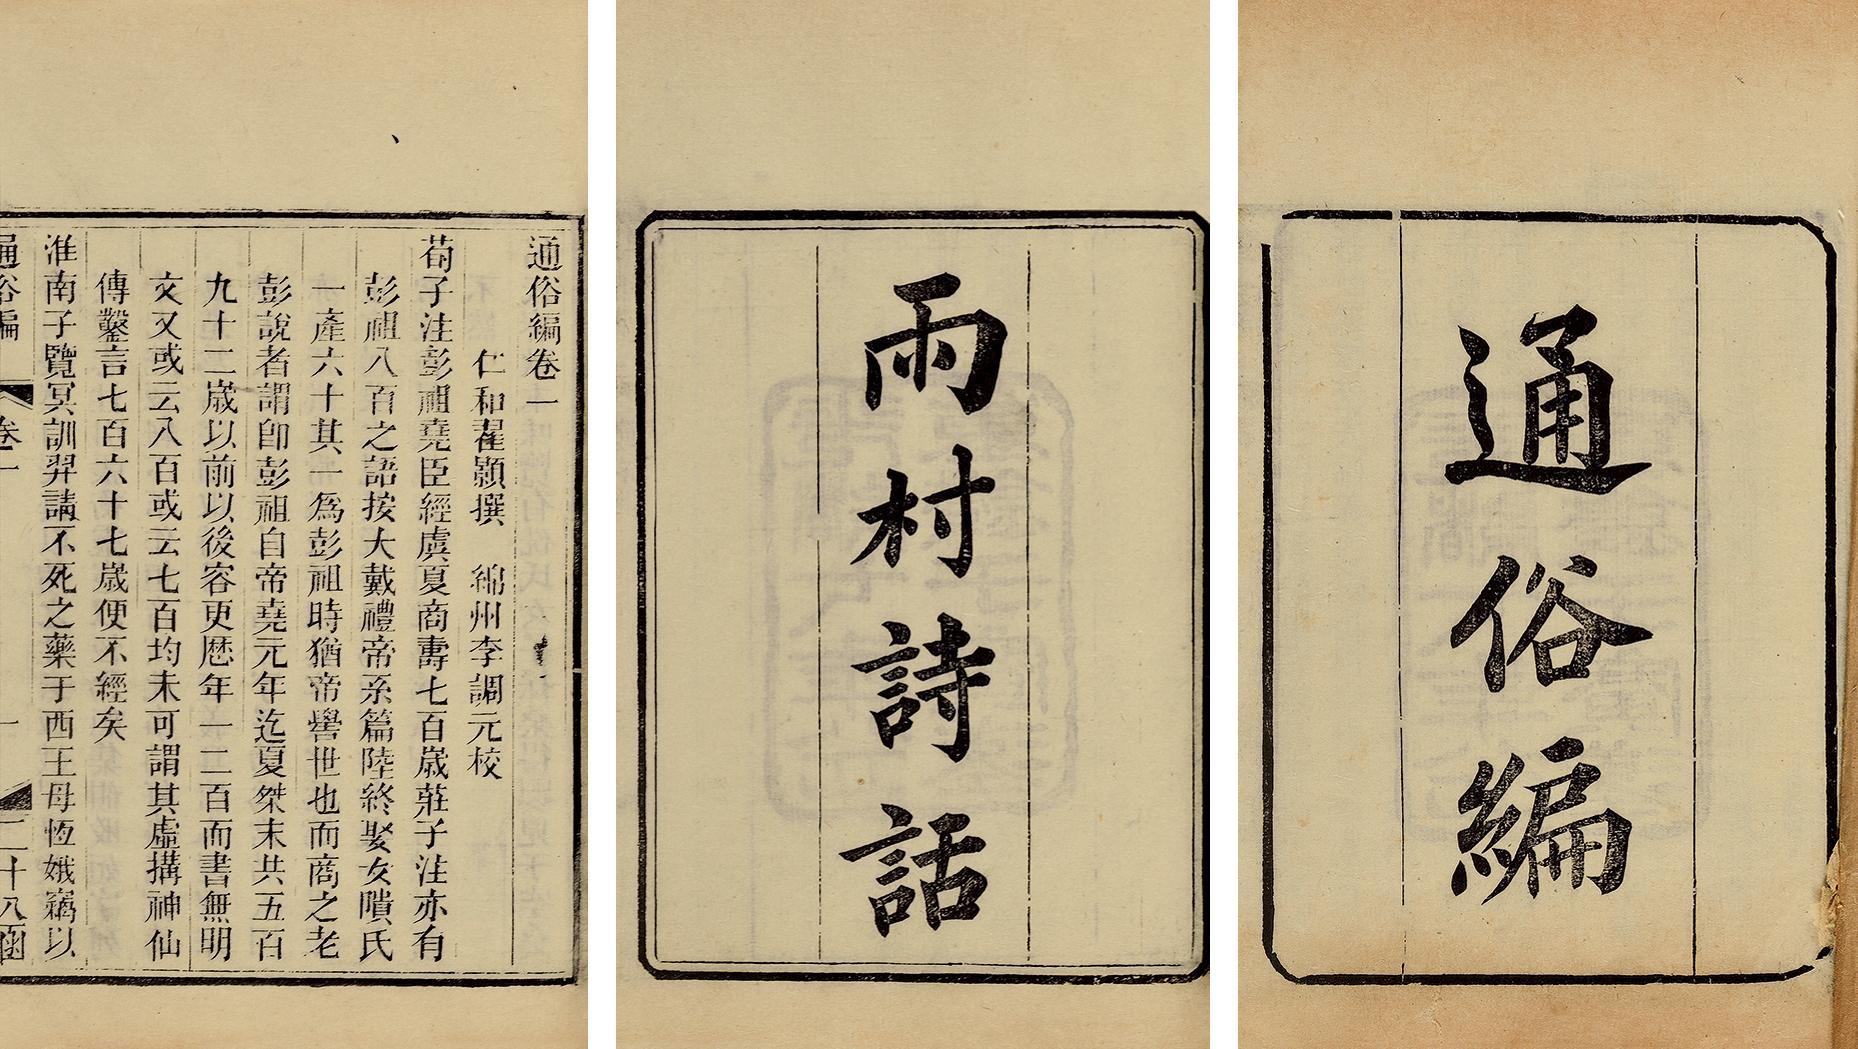 通俗編
雨村詩話
通俗編卷一
仁和翟顥撰　綿州李調元校
荀子注彭祖堯臣經虞夏商壽七百歲莊子注亦有
彭祖八百之語按大戴禮帝系篇陸終娶女隤氏
一產六十其一為彭祖時猶帝嚳世也而商之老
彭說者謂卽彭祖自帝堯元年迄夏桀末共五百
九十二歲以前以後容更歷年一二百而書無明
文又或云八百或云七百均未可謂其虛搆神仙
傳鑿言七百六十七歲便不經矣
淮南子覽冥訓羿請不死之藥于西王母恆娥竊以
通俗編　卷一　一　二十八函